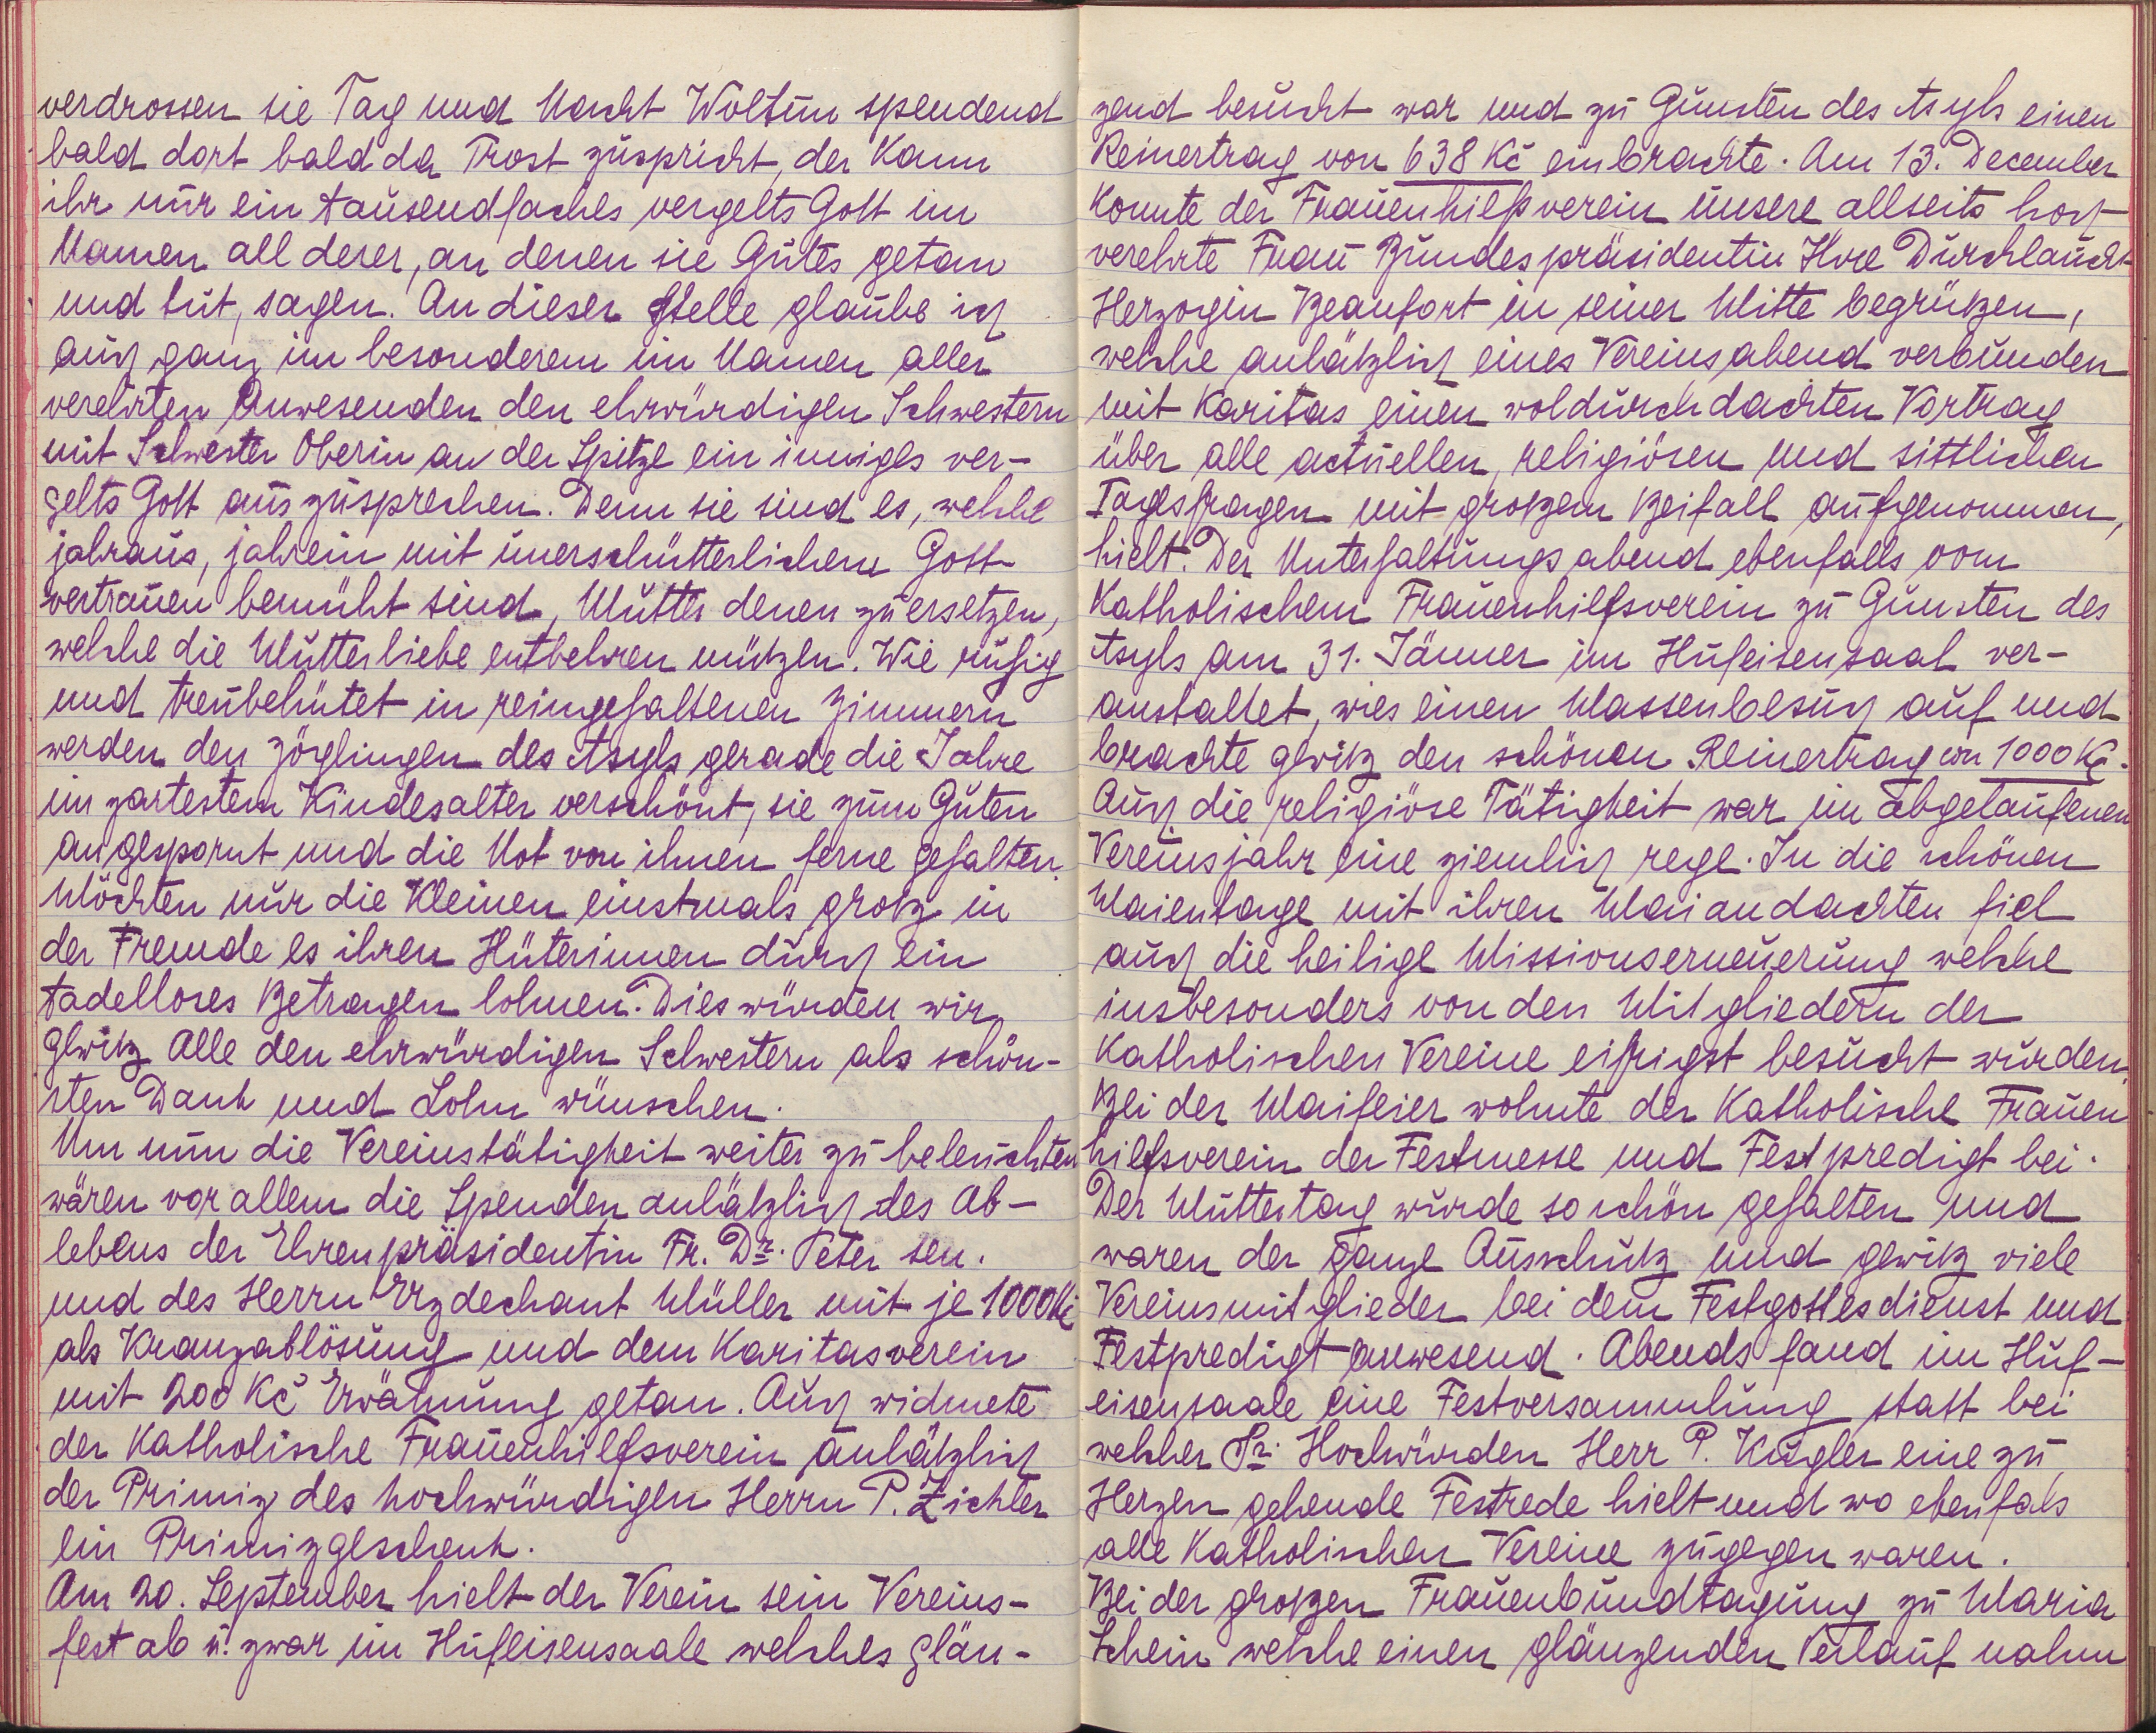 verdrossen sie Tag und Nacht Woltun spendend
bald dort bald da Trost zuspricht, der kann
ihr nur ein tausendfaches vergelts Gott im
Namen all derer, an denen sie Gutes getan
und tut, sagen. An dieser Stelle glaube ich
auch ganz im besonderem im Namen aller
verehrten Anwesenden den ehrwürdigen Schwestern
mit Schwester Oberin an der Spitze ein inniges ver-
gelts Gott auszusprechen. Denn sie sind es, welche
jahraus, jahrein mit unerschütterlichem Gott-
vertrauen bemüht sind, Mutter denen zu ersetzen,
welche die Mutterliebe entbehren müßen. Wie ruhig
und treubehütet in reingehaltenen Zimmern
werden den Zöglingen des Asyls gerade die Jahre
im zartestem Kindesalter verschönt, sie zum Guten
angespornt und die Not von ihnen ferne gehalten.
Möchten nur die Kleinen einstmals groß in
der Fremde es ihren Hüterinnen durch ein
tadelloses Betragen lohnen. Dies würden wir
gewiß alle den ehrwürdigen Schwestern als schön-
sten Dank und Lohn wünschen.
Um nun die Vereinstätigkeit weiter zu beleuchten
wären vor allem die Spenden anläßlich des Ab-
lebens der Ehrenpräsidentin Fr. Dr. Peter sen.
und des Herrn Erzdechant Müller mit je 1000 Kč
als Kranzablösung und dem Karitasverein
mit 200 Kč Erwähnung getan. Auch widmete
der Katholische Frauenhilfsverein anläßlich
der Primiz des hochwürdigen Herrn P. Zichter
ein Primizgeschenk.
Am 20. September hielt der Verein sein Vereins-
fest ab u. zwar im Hufeisensaale welches glän-
zend besucht war und zu Gunsten des Asyls einen
Reinertrag von 638 Kč einbrachte. Am 13. December
konnte der Frauenhilfsverein unsere allseits hoch-
verehrte Frau Bundespräsidentin Ihre Durchlaucht
Herzogin Beaufort in seiner Mitte begrüßen,
welche anläßlich eines Vereinsabend verbunden
mit Karitas einen woldurchdachten Vortrag
über alle actuellen, religiösen und sittlichen
Tagesfragen mit großem Beifall aufgenommen,
hielt. Der Unterhaltungsabend ebenfalls vom
Katholischem Frauenhilfsverein zu Gunsten des
Asyls am 31. Jänner im Hufeisensaal ver-
anstaltet, wies einen Massenbesuch auf und
brachte gewiß den schönen Reinertrag von 1000 Kč.
Auch die religiöse Tätigkeit war im abgelaufenen
Vereinsjahr eine ziemlich rege. In die schönen
Maientage mit ihren Maiandachten fiel
auch die heilige Missionserneuerung welche
insbesonders von den Mitgliedern der
Katholischen Vereine eifrigst besucht wurden.
Bei der Maifeier wohnte der Katholische Frauen
hilfsverein der Festmesse und Festpredigt bei.
Der Muttertag wurde so schön gehalten und
waren der ganze Ausschuß und gewiß viele
Vereinsmitglieder bei dem Festgottesdienst und
Festpredigt anwesend. Abends fand im Huf-
eisensaale eine Festversammlung statt bei
welcher Sr. Hochwürden Herr P. Kugler eine zu
Herzen gehende Festrede hielt und wo ebenfals
alle Katholischen Vereine zugegen waren.
Bei der großen Frauenbundtagung zu Maria
Schein welche einen glänzenden Verlauf nahm